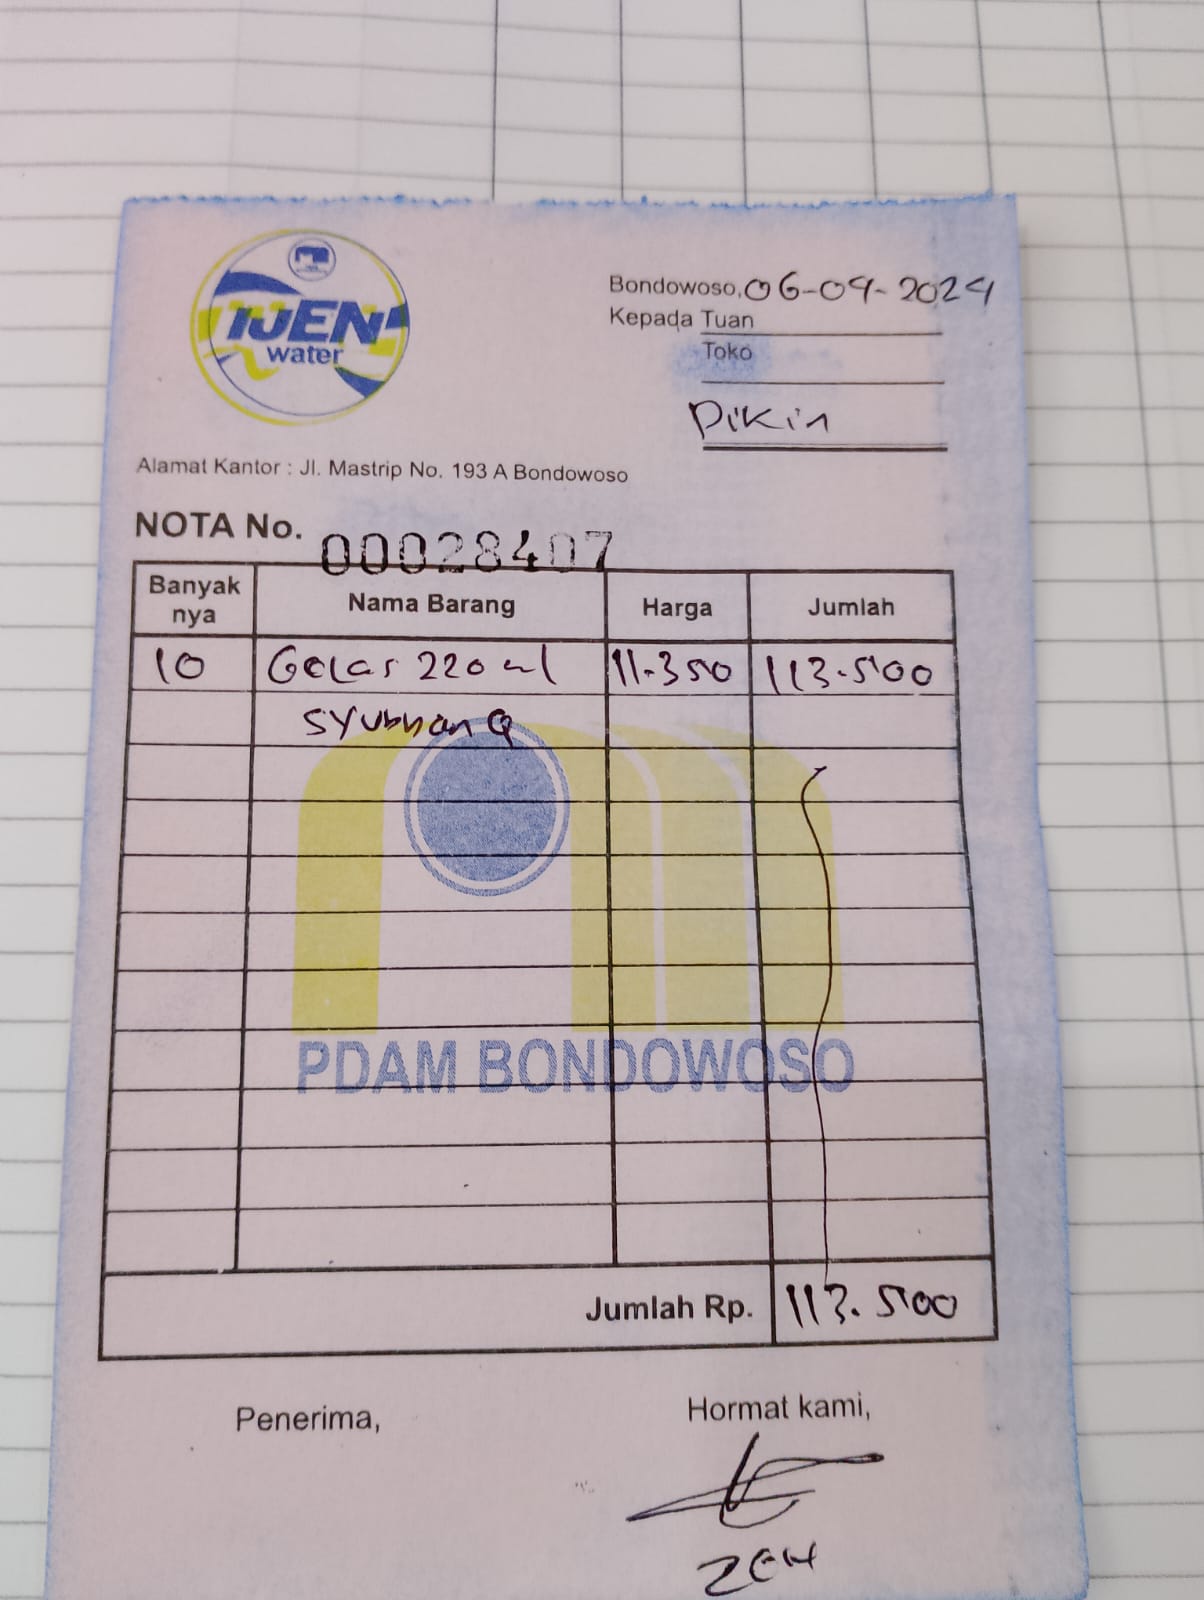 IJEN
water
Bondowoso, 06-09-2024
Kepada Tuan
Toko
Pikin
Alamat Kantor : Jl. Mastrip No. 193 A Bondowoso
NOTA No. 00028407
Banyak nya Nama Barang Harga Jumlah
10 Gelas 220 ml 11.350 113.500
Syubban Q
PDAM BONDOWOSO
Jumlah Rp. 113.500
Penerima, Hormat kami,
ZEH